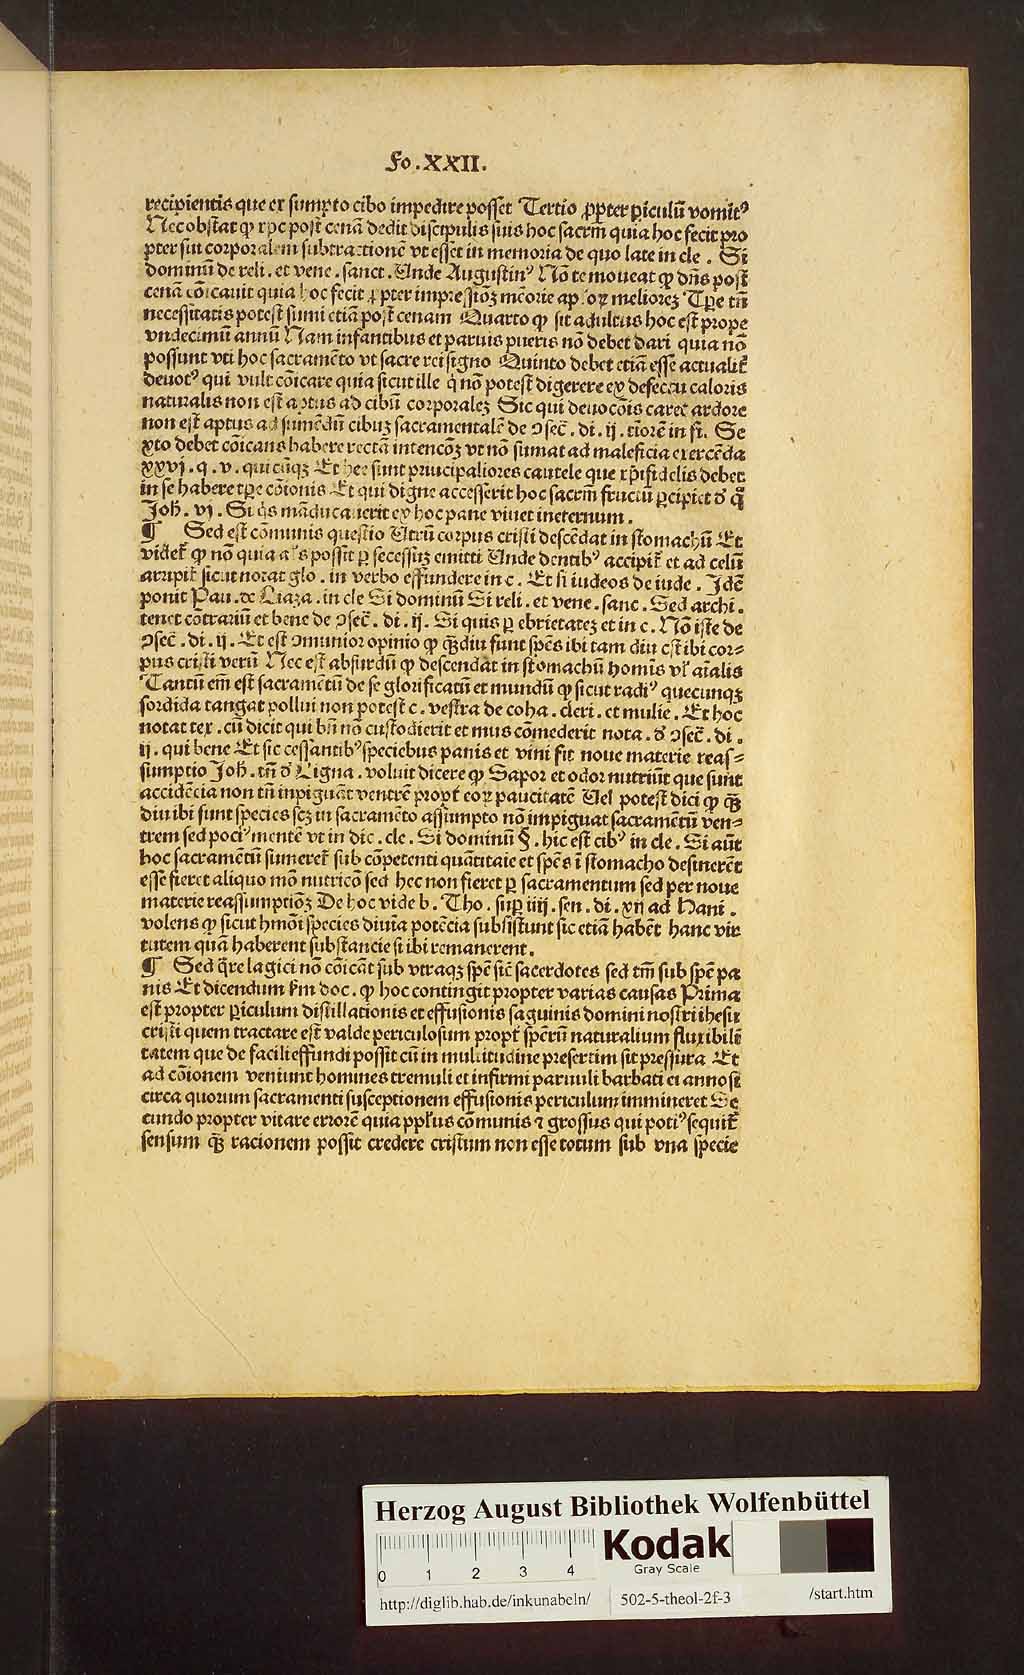 Fo.XXII.
recipientis que ex sumpto cibo impedire posset Tertio ꝓpter ꝑiculū vomitꝰ
Nec obstat ꝙ xp̄c post cenā dedit discipulis suis hoc sacrm̄ quia hoc fecit pro
pter sui corporalem subtractionē vt esset in memoria de quo late in cle . Si
dominū de reli . et vene . sanct . Unde Augustinꝰ Nō te moueat ꝙ dn̄s post
cenā cōicauit quia hoc fecit ꝓpter impressiōꝫ mēorie apl'oꝝ meliorez Tꝑe tn̄
necessitatis potest sumi etiā post cenam Quarto ꝙ sit adultus hoc est prope
vndecimū annū Nam infantibus et paruis pueris nō debet dari quia nō
possunt vti hoc sacramēto vt sacre rei signo Quinto debet etiā esse actualit̄
deuotꝰ qui vult cōicare quia sicut ille q̇ nō potest digerere ex defectu caloris
naturalis non est aptus ad cibū corporalez Sic qui deuocōis caret ardore
non est aptus ad sumēdū cibuꝫ sacramentalē de ꝯsec̄ . di . ij . tīorē in fi . Se
xto debet cōicans habere rectā intencōꝫ vt nō sumat ad maleficia exercēda
xxvj . q . v . qui cūqꝫ Et hec sunt principaliores cautele que xp̄ifidelis debet
in se habere tꝑe cōionis Et qui digne accesserit hoc sacrm̄ fructū ꝑcipiet ð q̊
Joh̄ . vj . Si q̇s māducauerit ex hoc pane viuet ineternum .
¶ Sed est cōmunis questio Utrū corpus cristi descēdat in stomachū Et
videt̄ ꝙ nō quia als possit ꝑ secessuꝫ emitti Unde dentibꝰ accipit̄ et ad celū
arripit̄ sicut notat glo . in verbo effundere in c . Et si iudeos de iude . Jdē
ponit Pau . de Liaza . in cle Si dominū Si reli . et vene . sanc . Sed archi .
tenet cōtrariū et bene de ꝯsec̄ . di . ij . Si quis ꝑ ebrietatez et in c . Nō iste de
ꝯsec̄ . di . ij . Et est ꝯmunior opinio ꝙ qꝫdiu sunt spēs ibi tam diu est ibi cor⸗
pus cristi verū Nec est absurdū ꝙ descendat in stomachū homīs vl' aīalis
Tantū em̄ est sacramētū de se glorificatū et mundū ꝙ sicut radiꝰ quecunqꝫ
sordida tangat pollui non potest c . vestra de coha . cleri . et mulie . Et hoc
notat tex . cū dicit qui bn̄ nō custodierit et mus cōmederit nota . ð ꝯsec̄ . di .
ij . qui bene Et sic cessantibꝰ speciebus panis et vini fit noue materie reas⸗
sumptio Joh . tn̄ ð Ligna . voluit dicere ꝙ Sapor et odor nutriūt que sunt
accidēcia non tn̄ inpiguāt ventrē propt̄ eoꝝ paucitatē Uel potest dici ꝙ qꝫ
diu ibi sunt species scꝫ in sacramēto assumpto nō impiguat sacramētū ven⸗
trem sed pociꝰ mentē vt in dic . cle . Si dominū § . hic est cibꝰ in cle . Si aūt
hoc sacramētū sumeret̄ sub cōpetenti quātitate et spēs ī stomacho desinerēt
esse fieret aliquo mō nutricō sed hec non fieret ꝑ sacramentum sed per noue
materie reassumptiōꝫ De hoc vide b . Tho . suꝑ iiij . sen . di . xij ad Hani .
volens ꝙ sicut hmōi species diuīa potēcia subsistunt sic etiā habēt hanc vir
tutem quā haberent substancie si ibi remanerent .
¶ Sed q̄re lagici nō cōicāt sub vtraqꝫ spē sic̄ sacerdotes sed tm̄ sub spē pa
nis Et dicendum ẜm doc . ꝙ hoc contingit propter varias causas Prima
est propter ꝑiculum distillationis et effusionis saguinis domini nostri ihesu
cristi quem tractare est valde periculosum propt̄ spērū naturalium fluxibili⸗
tatem que de facili effundi possit cū in multitudine presertim sit pressura Et
ad cōionem veniunt homines tremuli et infirmi paruuli barbati et annosi
circa quorum sacramenti susceptionem effusionis periculum immineret Se
cundo propter vitare errorē quia ppl'us cōmunis ⁊ grossus qui potiꝰ sequit̄
sensum qꝫ racionem possit credere cristum non esse totum sub vna specie
Herzog August Bibliothek Wolfenbüttel
0 1 2 3 4
Kodak
Gray Scale
http://diglib.hab.de/inkunabeln/ 502-5-theol-2f-3 /start.htm